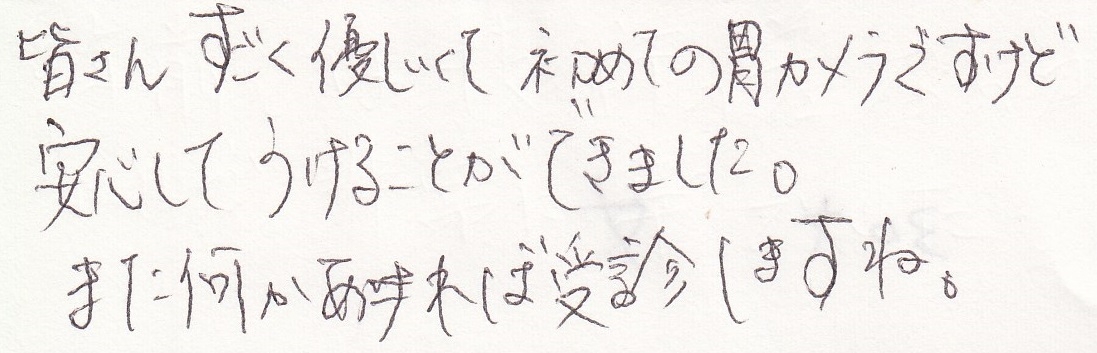 皆さん すごく優しくて 初めての胃カメラですけど
安心して うけることができました。
また何かあれば受診しますね。